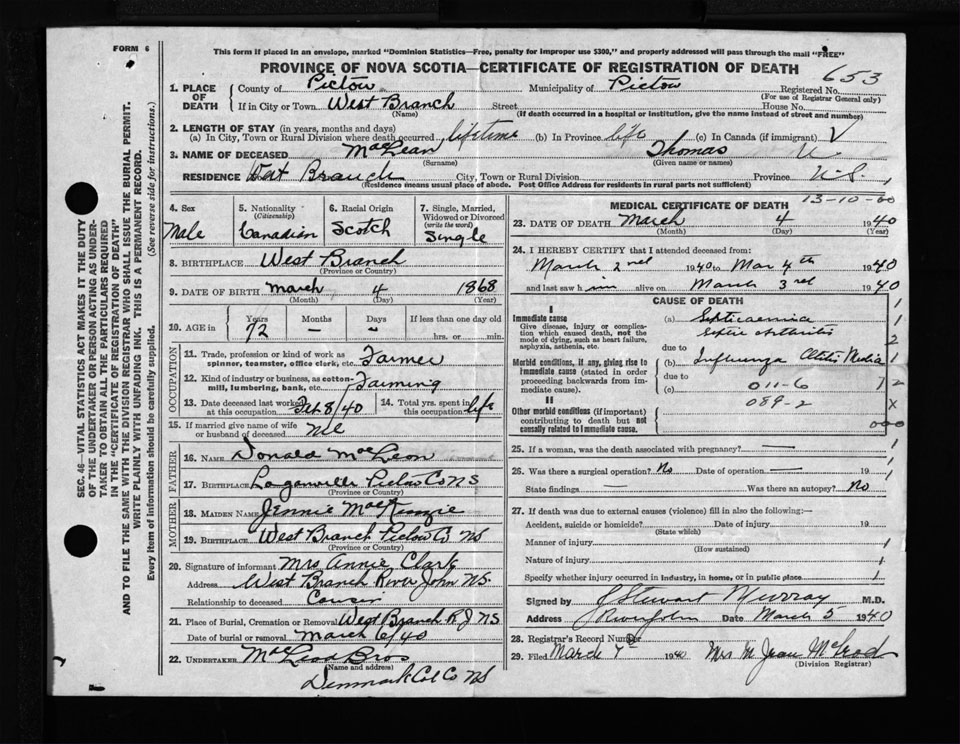 FORM 6
This form if placed in an envelope, marked "Dominion Statistics—Free, penalty for improper use $300," and properly addressed will pass through the mail "FREE"
PROVINCE OF NOVA SCOTIA—CERTIFICATE OF REGISTRATION OF DEATH
653
1. PLACE OF DEATH
County of Pictou Municipality of Pictou Registered No.
(For use of Registrar General only)
If in City or Town West Branch Street House No.
(Name) (If death occurred in a hospital or institution, give the name instead of street and number)
2. LENGTH OF STAY (in years, months and days)
(a) In City, Town or Rural Division where death occurred lifetime (b) In Province life (c) In Canada (if immigrant)
3. NAME OF DECEASED MacLean Thomas
(Surname) (Given name or names)
RESIDENCE West Branch City, Town or Rural Division Province N.S.
(Residence means usual place of abode. Post Office Address for residents in rural parts not sufficient)
SEC. 46—VITAL STATISTICS ACT MAKES IT THE DUTY
OF THE UNDERTAKER OR PERSON ACTING AS UNDER-
TAKER TO OBTAIN ALL THE PARTICULARS REQUIRED
IN THE "CERTIFICATE OF REGISTRATION OF DEATH"
AND TO FILE THE SAME WITH THE DIVISION REGISTRAR WHO SHALL ISSUE THE BURIAL PERMIT.
WRITE PLAINLY WITH UNFADING INK. THIS IS A PERMANENT RECORD.
Every item of information should be carefully supplied. (See reverse side for instructions.)
4. Sex
Male
5. Nationality
(Citizenship)
Canadian
6. Racial Origin
Scotch
7. Single, Married, Widowed or Divorced
(write the word)
Single
8. BIRTHPLACE West Branch
(Province or Country)
9. DATE OF BIRTH March 4 1868
(Month) (Day) (Year)
10. AGE in Years Months Days If less than one day old
72 — — hrs. or min.
OCCUPATION
11. Trade, profession or kind of work as
spinner, teamster, office clerk, etc. Farmer
12. Kind of industry or business, as cotton-
mill, lumbering, bank, etc. Farming
13. Date deceased last worked
at this occupation Feb 8/40
14. Total yrs. spent in
this occupation life
15. If married give name of wife
or husband of deceased
FATHER
16. NAME Donald MacLean
17. BIRTHPLACE Loganville Pictou Co NS
(Province or Country)
MOTHER
18. MAIDEN NAME Jennie MacKenzie
19. BIRTHPLACE West Branch Pictou Co NS
(Province or Country)
20. Signature of informant Mrs Annie Clark
Address West Branch River John NS.
Relationship to deceased Cousin
21. Place of Burial, Cremation or Removal West Branch R J NS
Date of burial or removal March 6/40
22. UNDERTAKER MacLeod Bros
(Name and address)
Denmark Col Co NS
MEDICAL CERTIFICATE OF DEATH
13-10-60
23. DATE OF DEATH March 4 1940
(Month) (Day) (Year)
24. I HEREBY CERTIFY that I attended deceased from:
March 2nd 1940 to Mar 4th 1940
and last saw him alive on March 3rd 1940
CAUSE OF DEATH
I
Immediate cause
Give disease, injury or complica-
tion which caused death, not the
mode of dying, such as heart failure,
asphyxia, asthenia, etc.
(a) Septicaemia
Septic Arthritis
due to
Morbid conditions, if any, giving rise to
immediate cause (stated in order
proceeding backwards from im-
mediate cause).
(b) Influenza Otitis Media
due to
(c) 011-6
089-2
II
Other morbid conditions (if important)
contributing to death but not
causally related to immediate cause.
25. If a woman, was the death associated with pregnancy?
26. Was there a surgical operation? No Date of operation — 19
State findings — Was there an autopsy? No
27. If death was due to external causes (violence) fill in also the following:—
Accident, suicide or homicide? Date of injury 19
(State which)
Manner of injury
(How sustained)
Nature of injury
Specify whether injury occurred in industry, in home, or in public place
Signed by J Stewart Murray M.D.
Address River John Date March 5 1940
28. Registrar's Record Number
29. Filed March 7 1940 Mrs M Jean McLeod
(Division Registrar)